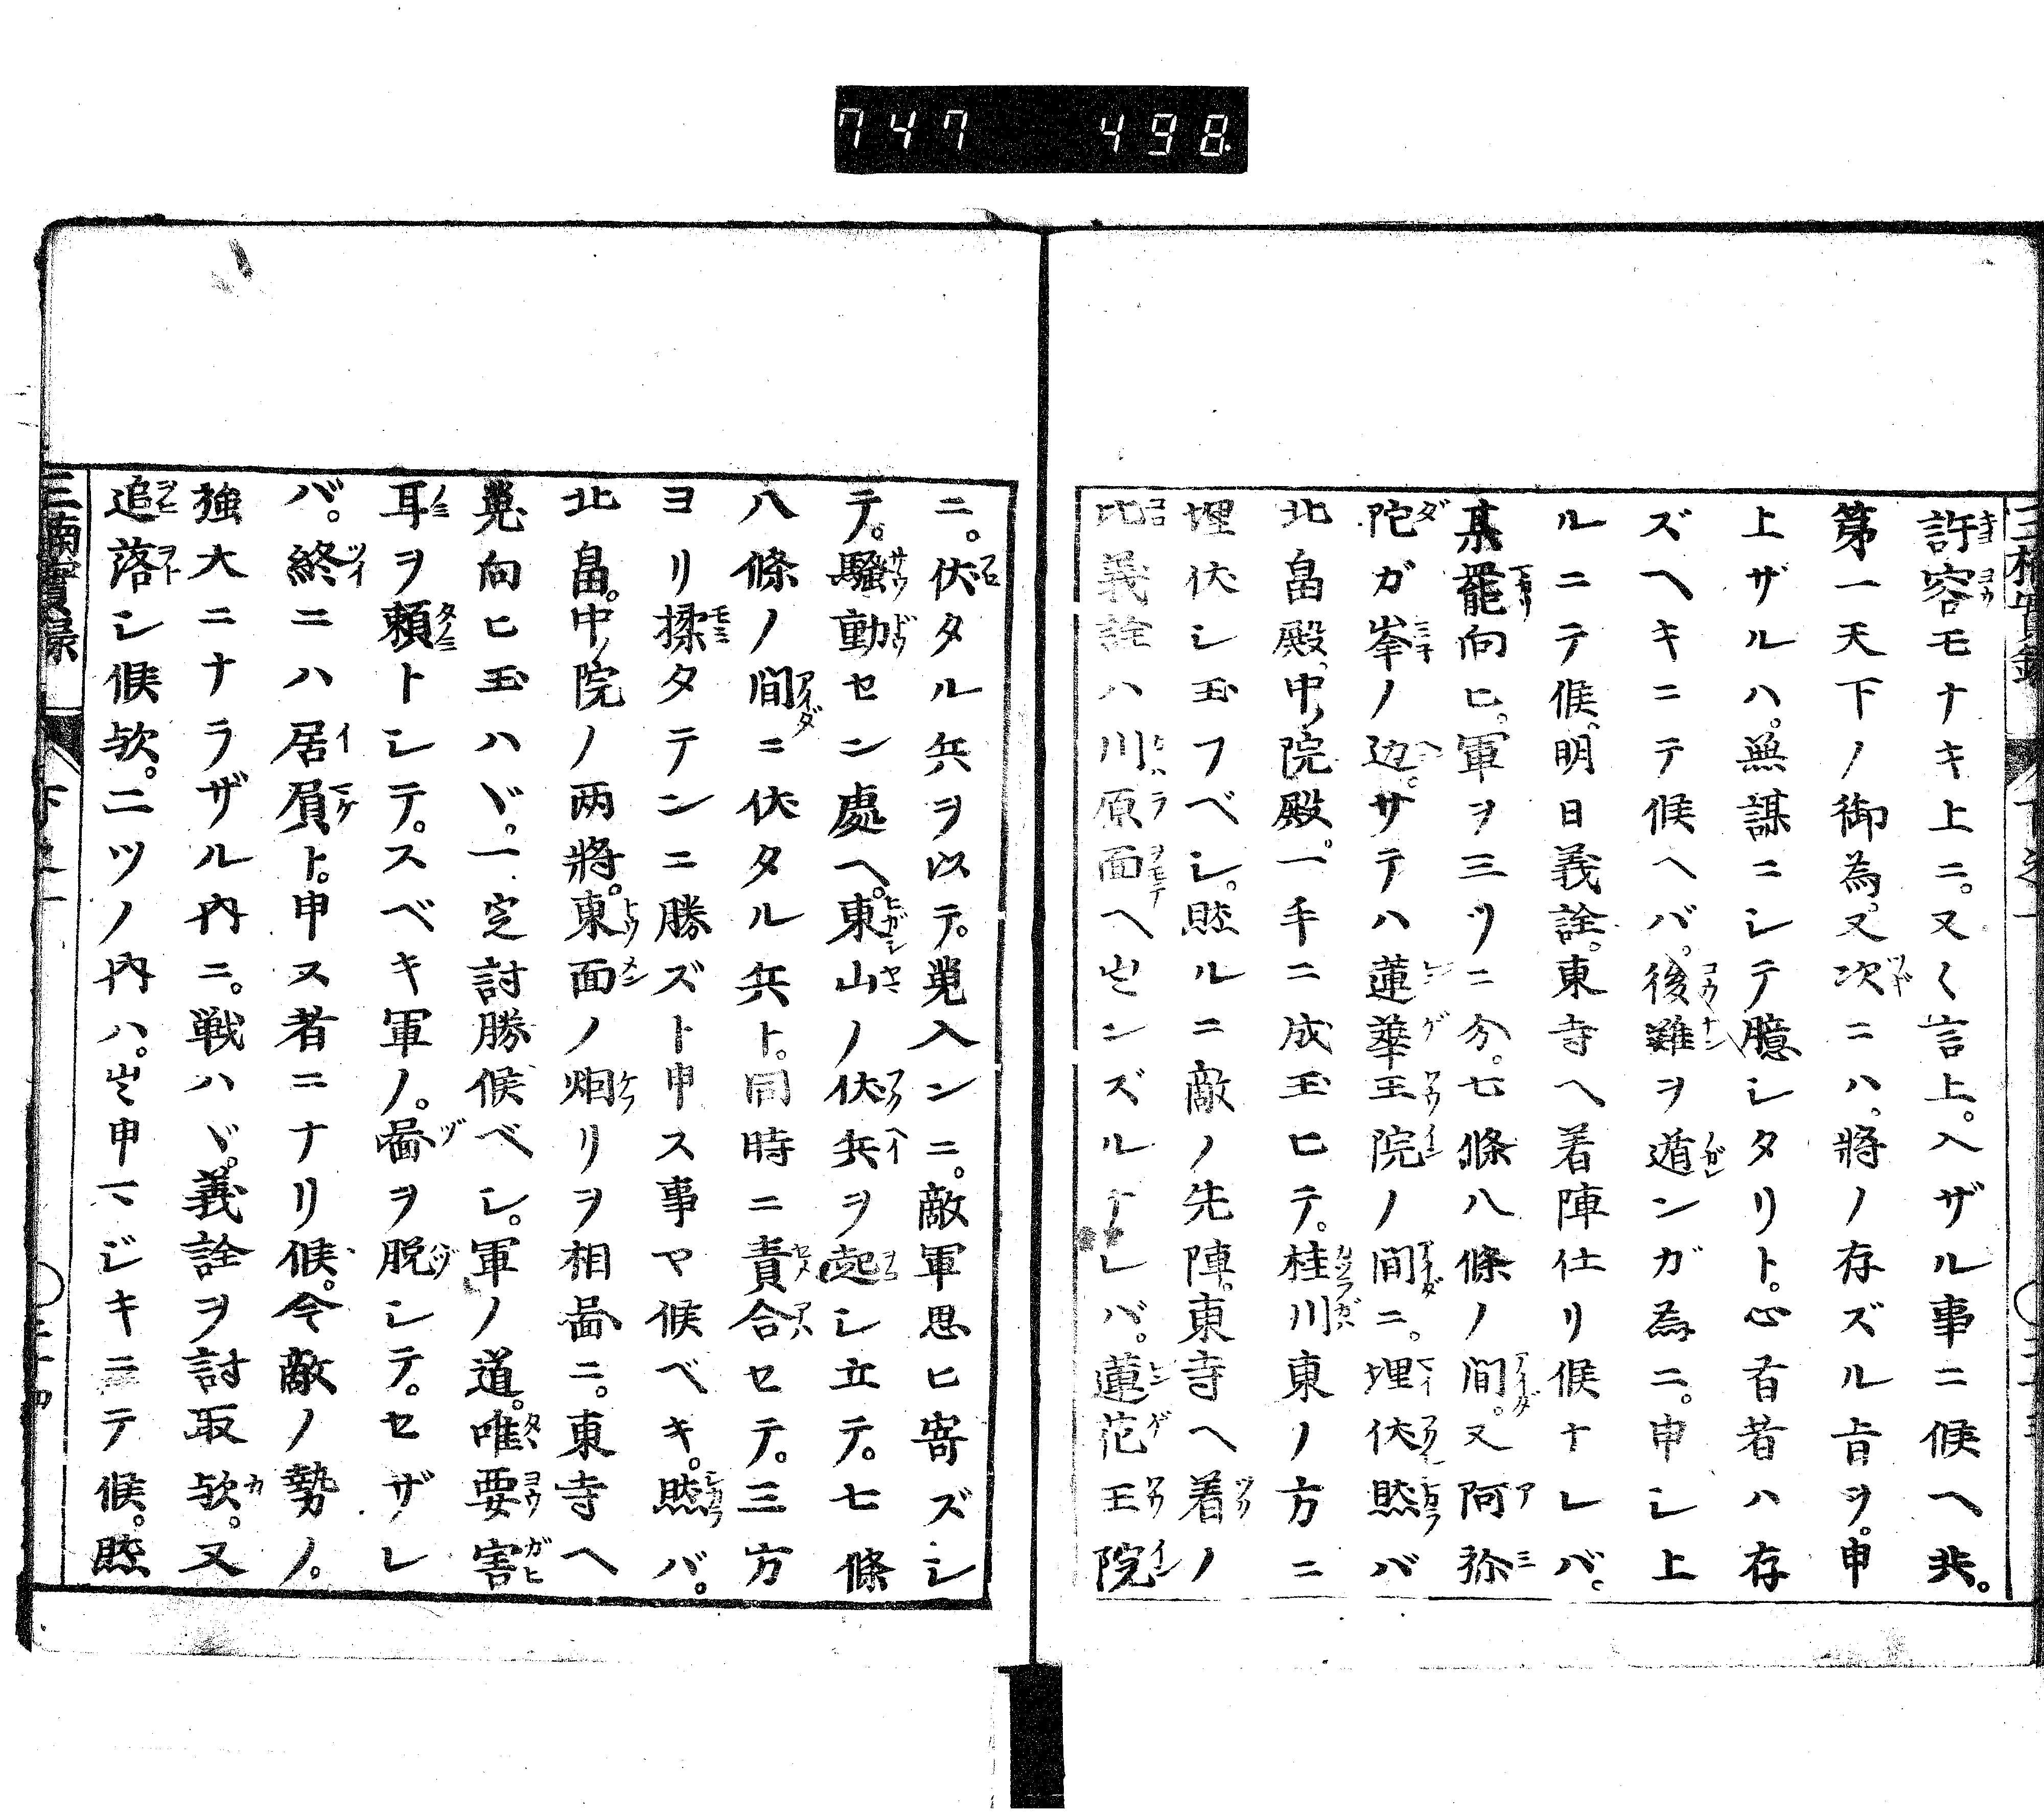 747 498
許容モナキ上ニ。又〱言上。入ザル事ニ候ヘ共。
第一天下ノ御為。又次ニハ。將ノ存ズル旨ヲ。申
上ザルハ。無謀ニシテ臆シタリト。心有者ハ存
ズヘキニテ候ヘバ。後難ヲ遁ンガ為ニ。申シ上
ルニテ候。明日義詮。東寺ヘ着陣仕リ候ナレバ。
某罷向ヒ。軍ヲ三ツニ分。七條八條ノ間。又阿弥
陀ガ峯ノ辺。サテハ蓮華王院ノ間ニ。埋伏然バ
北畠殿。中ノ院殿。一手ニ成玉ヒテ。桂川東ノ方ニ
埋伏シ玉フベシ。然ルニ敵ノ先陣。東寺ヘ着ノ
比義詮ハ川原面ヘ出ンズルナレバ。蓮花王院
ニ。伏タル兵ヲ以テ。蒐入ンニ。敵軍思ヒ寄ズシ
テ。騒動セン處ヘ。東山ノ伏兵ヲ起シ立テ。七條
八條ノ間ニ伏タル兵ト。同時ニ責合セテ。三方
ヨリ揉タテンニ勝ズト申ス事ヤ候ベキ。然バ。
北畠。中ノ院ノ両將。東面ノ烟リヲ相啚ニ。東寺ヘ
蒐向ヒ玉ハヾ。一定討勝候ベシ。軍ノ道。唯要害
耳ヲ頼トシテ。スベキ軍ノ。啚ヲ脱シテ。セザレ
バ。終ニハ居屓ト。申ス者ニナリ候。今敵ノ勢ノ。
強大ニナラザル内ニ。戦ハヾ。義詮ヲ討取欤。又
追落シ候欤。二ツノ内ハ。出申マジキニテ候。然
三楠實録
下之一